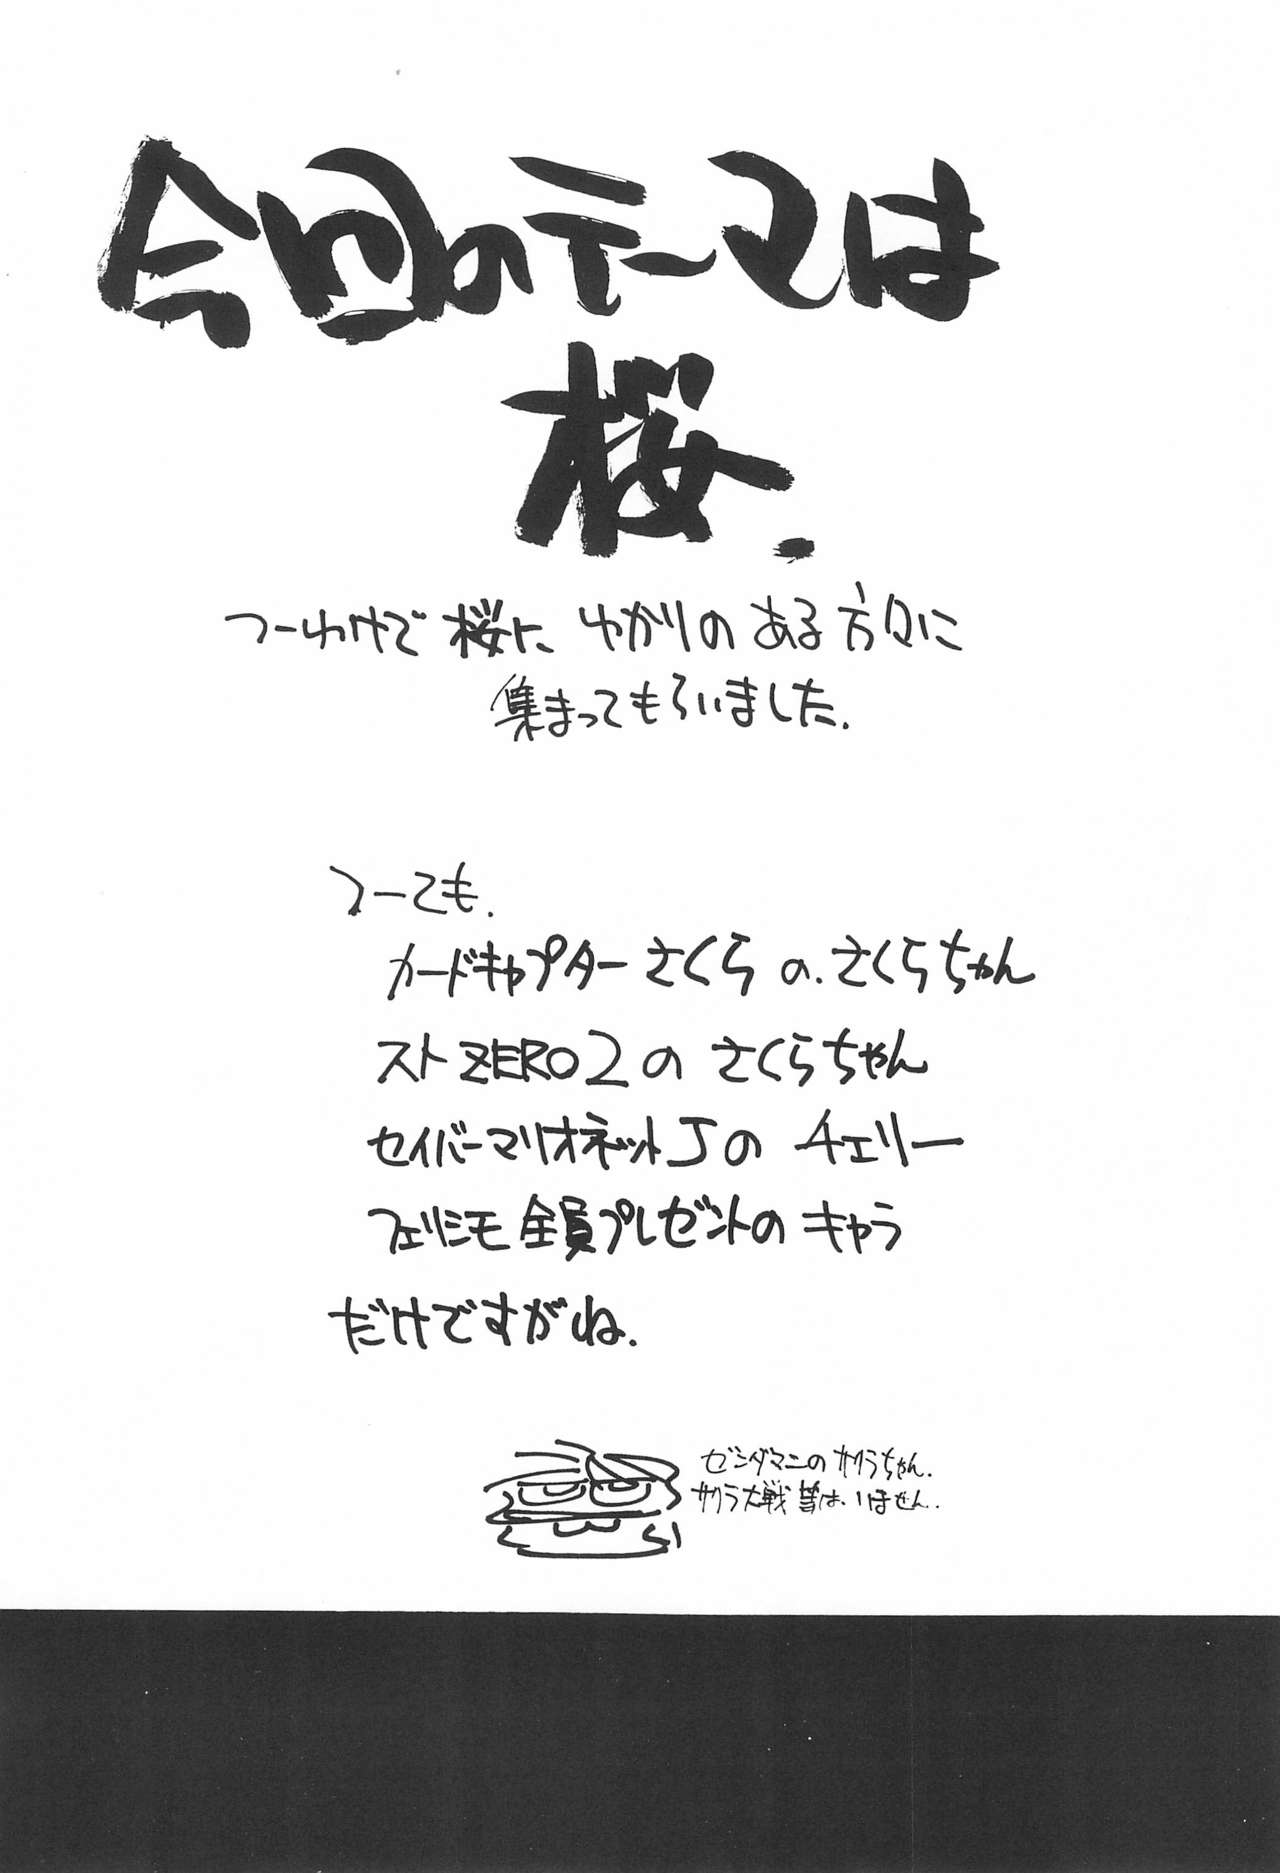 今回のテーマは
桜.
つーわけで桜に ゆかりの ある方々に
集まってもらいました.
つーても.
カードキャプターさくらの.さくらちゃん
ストZERO2の さくらちゃん
セイバーマリオネットJの チェリー
フェリシモ全員プレゼントの キャラ
だけですがね.
ゼンダマンの サクラちゃん.
サクラ大戦 等は.いません.